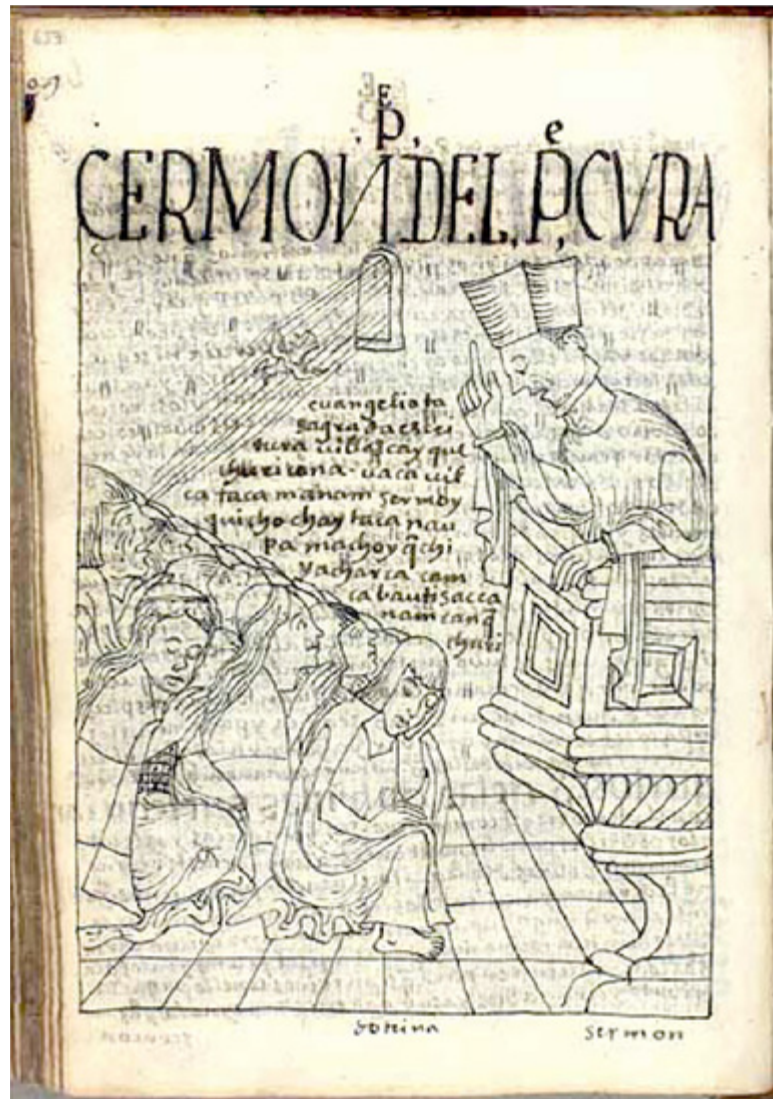 E
P
CERMON DEL, P, CVRA
e
euangelio ta
sagrada escri
tura uillascayque
churicona · uaca uil
ca taca manam sermoy
quicho chay taca nau
pa machoyq̃chi
yacharca cam
ca bautisacca
nam canq̃
churi
dotrina
sermon